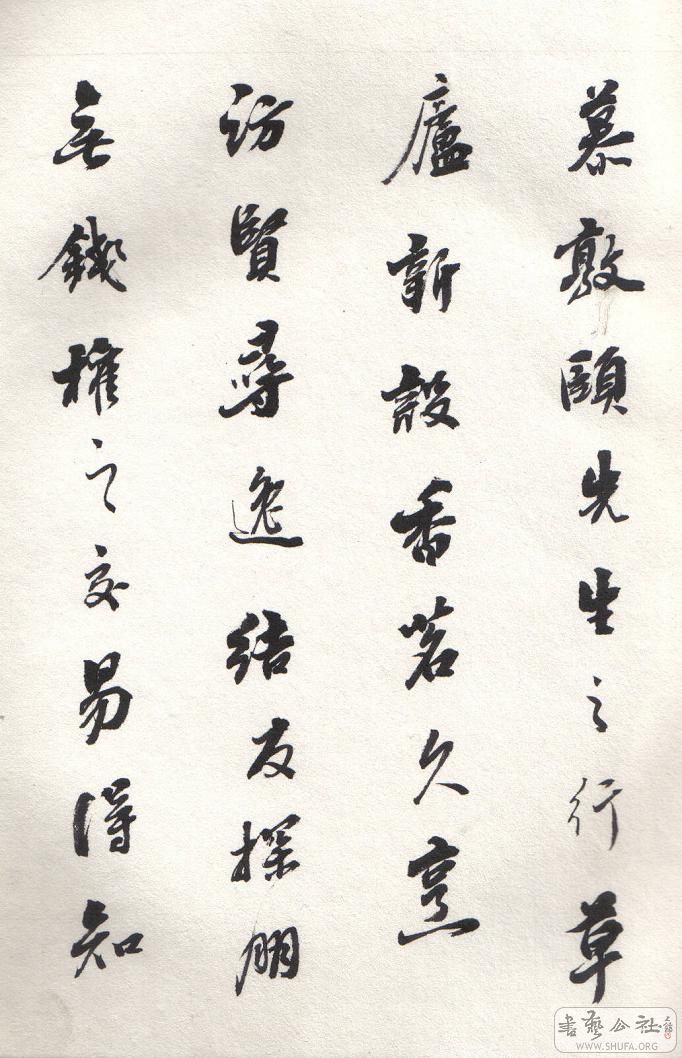 慕敦頤先生之行草
廬新設香茗久烹
訪賢尋逸結友探朋
無錢權之交易得知
書藝公社
WWW.SHUFA.ORG